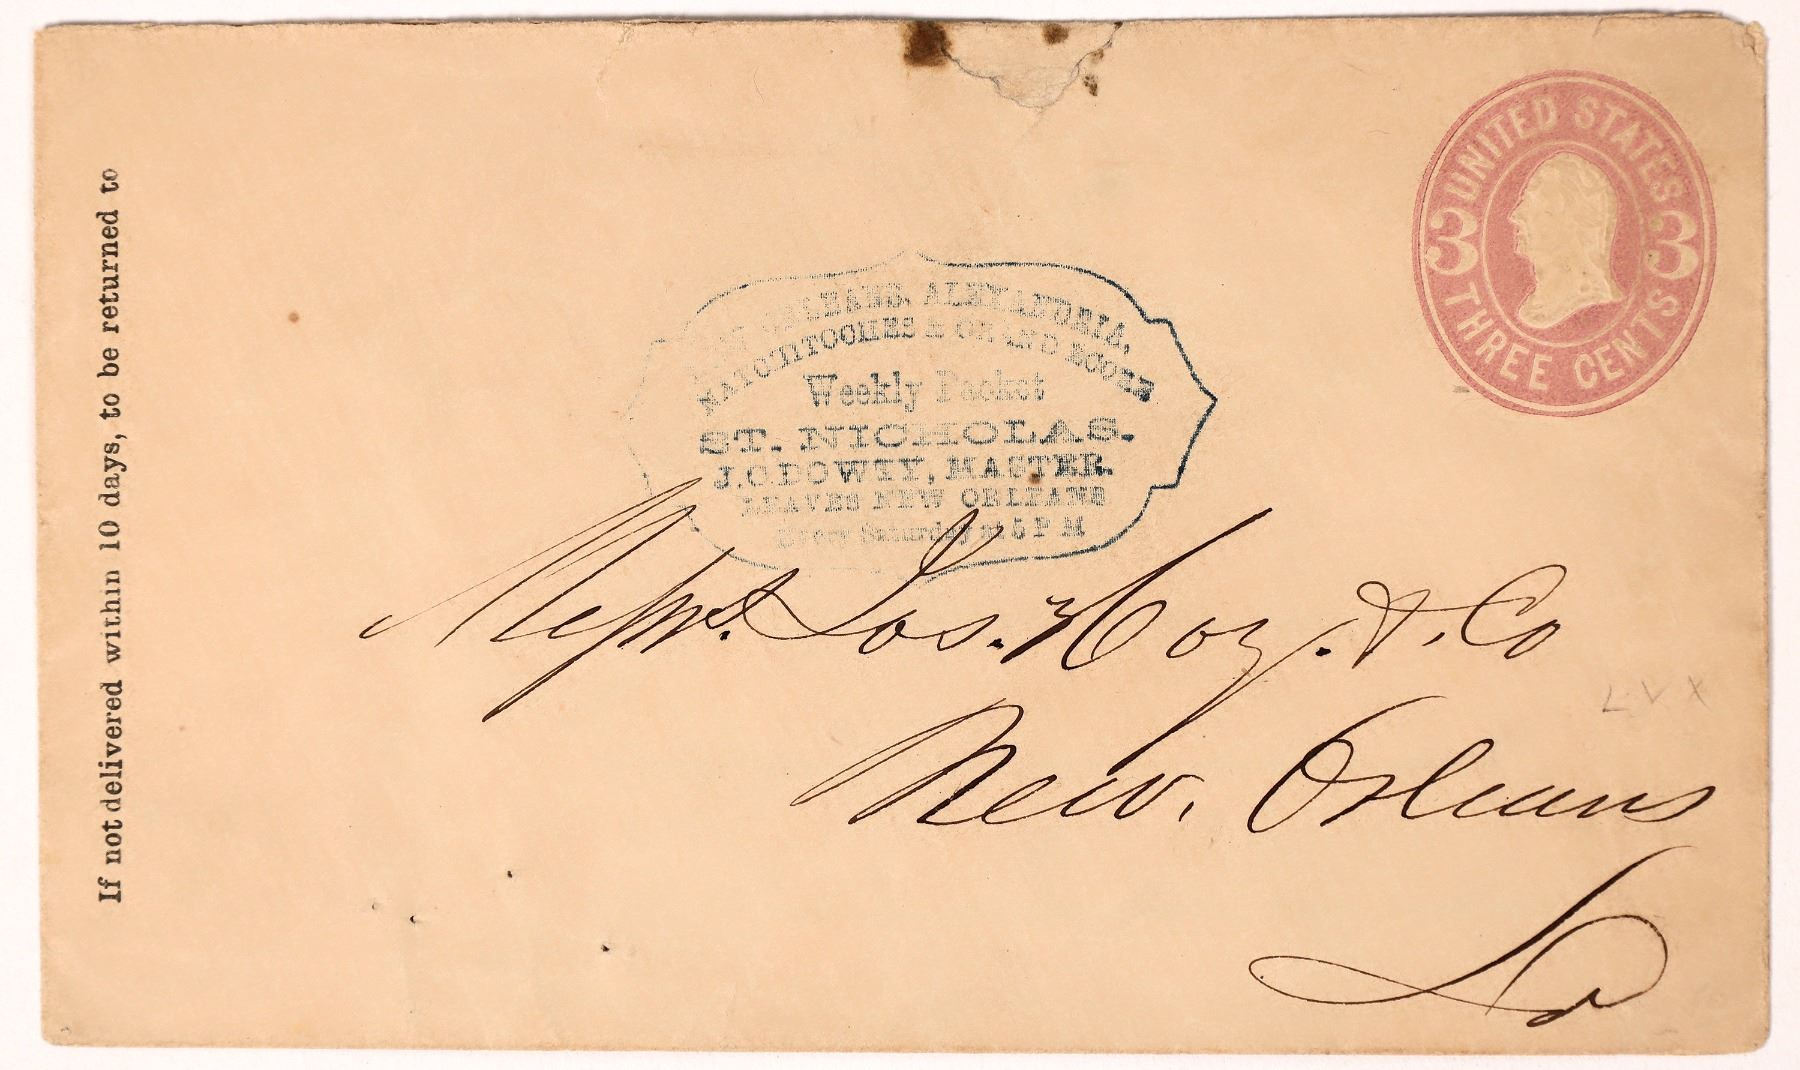 If not delivered within 10 days, to be returned to
UNITED STATES
3 3
THREE CENTS
NEW ORLEANS, ALEXANDRIA,
NATCHITOCHES & GRAND ECORE
Weekly Packet
ST. NICHOLAS.
J.C. DOWTY, MASTER.
LEAVES NEW ORLEANS
Every Saturday at 5 P M
Messrs. Jos. Hoy. & Co
New. Orleans
La